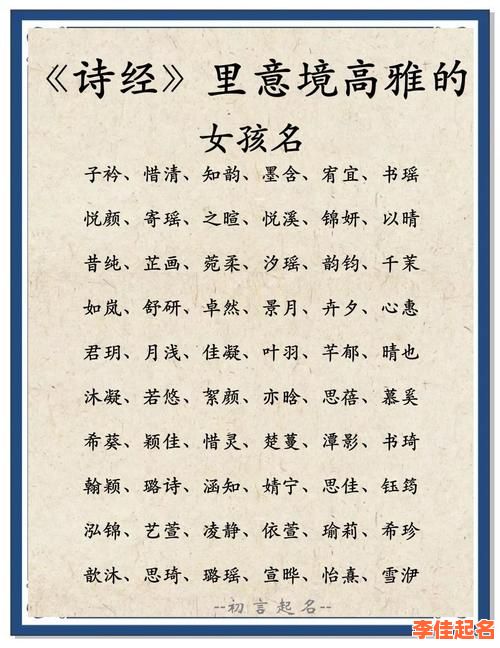 《诗经》里意境高雅的
女孩名
子衿、惜清、知韵、墨含、宥宜、书瑶
悦颜、寄瑶、之暄、悦溪、锦妍、以晴
昔纯、芷画、菀柔、汐瑶、韵钧、千茉
如岚、舒研、卓然、景月、卉夕、心惠
君玥、月浅、佳凝、叶羽、芊郁、晴也
沐凝、若悠、絮颜、亦晗、思蓓、慕奚
希葵、颖佳、惜灵、楚蔓、潭影、书琦
翰颖、璐诗、涵知、婧宁、思佳、钰筠
泓锦、艺萱、凌静、依萱、瑜莉、希珍
歆沐、思琦、璐瑶、宣晔、怡熹、雪伊
--初言起名--
李佳起名